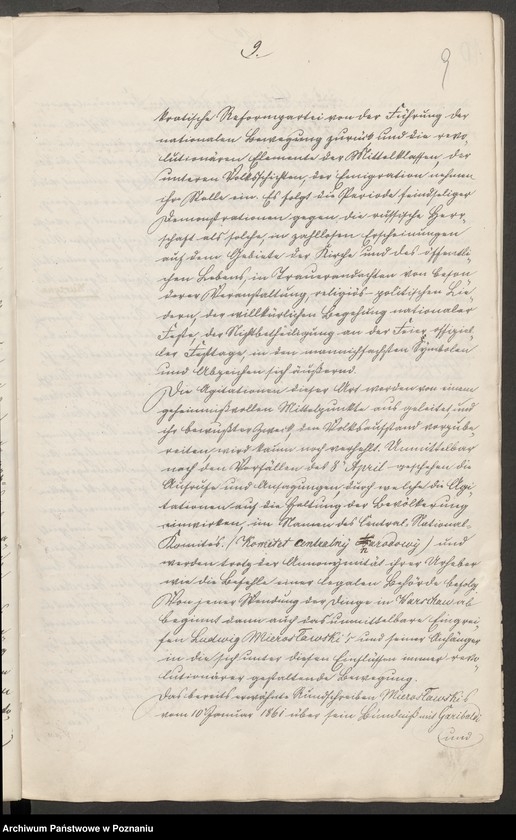 9.
9
kratische Reformpartei von der Führung der
nationalen Bewegung zurück und die revo-
lutionären Elemente der Mittelklassen, der
unteren Volksschichten, der Emigration nehmen
ihre Rolle ein. Es folgt die Periode feindseliger
Demonstrationen gegen die russische Herr-
schaft als solche, in zahllosen Erscheinungen
auf dem Gebiete der Kirche und des öffentli-
chen Lebens, in Trauerandachten von beson
derer Veranstaltung, religiös-politischen Lie-
dern, der willkürlichen Begehung nationaler
Feste, der Nichtbetheiligung an der Feier offiziel-
ler Festtage, in den mannichfachsten Symbolen
und Abzeichen sich äußernd.
Die Agitationen dieser Art werden von einem
geheimnißvollen Mittelpunkte aus geleitet und
ihr bewußter Zweck, den Volksaufstand vorzube-
reiten wird kaum noch verhehlt. Unmittelbar
nach den Vorfällen des 8 April geschehen die
Aufrufe und Ansagungen, durch welche die Agi-
tationen auf die Haltung der Bevölkerung
einwirken, im Namen des Central-National-
Komités. (Komitet centralny narodowy) und
werden trotz der Anonymität ihrer Urheber
wie die Befehle einer legalen Behörde befolgt
Von jener Wendung der Dinge in Warschau ab
beginnt dann auch das unmittelbare Eingrei-
fen Ludwig Mierosławski's und seiner Anhänger
in die sich unter diesen Einflüssen immer revo-
lutionärer gestaltende Bewegung.
Das bereits erwähnte Rundschreiben Mierosławskis
vom 10 Januar 1861 über sein Bündniß mit Garibaldi
und
Archiwum Państwowe w Poznaniu